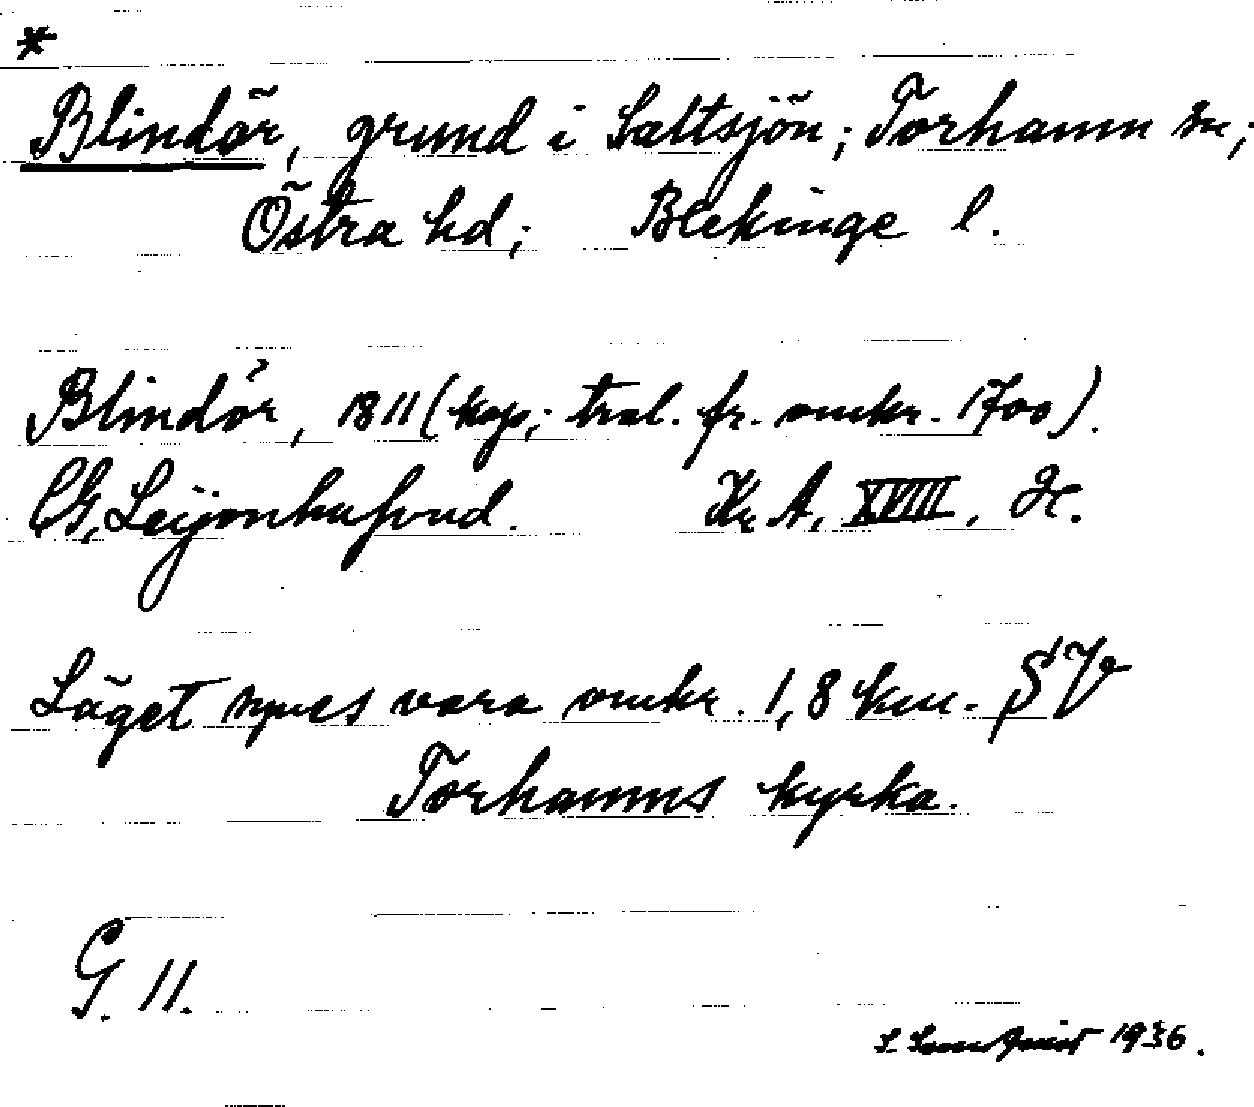 *
Blindör, grund i Saltsjön; Torhamn sn;
Östra hd; Blekinge l.
Blindör, 1811 (kop; tral. fr. omkr. 1700).
CG, Leijonhufvud. Kr. A. XVIII, H.
Läget synes vara omkr. 1,8 km. SV
Torhamns kyrka.
G. 11.
1936.